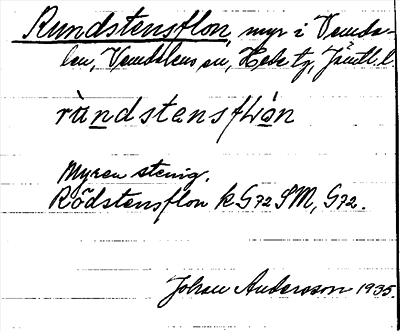 Rundstensflon, myr i Vemda-
len, Vemdalens sn, Hede tg, Jämtl. l.
ràndstensflón
Myren stenig.
Rödstensflon k G72 SM, G72.
Johan Andersson 1935.